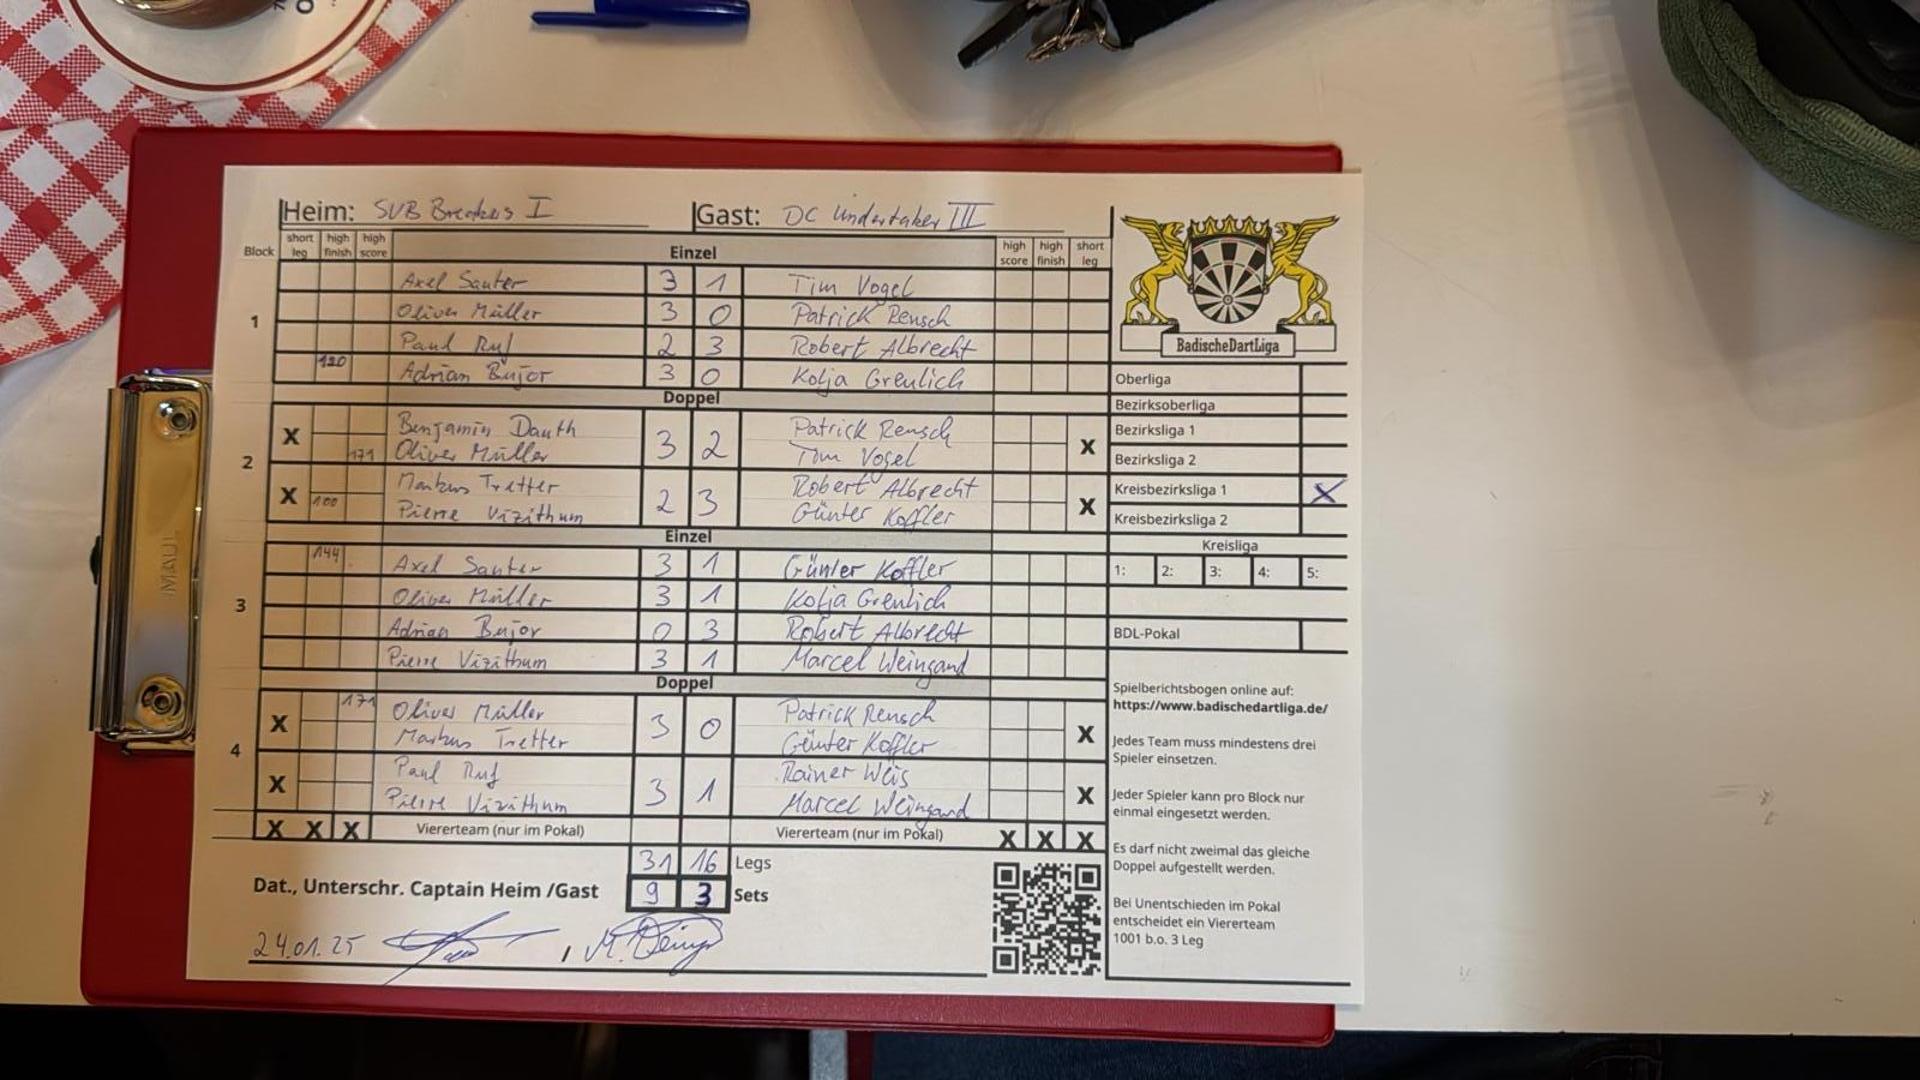 Heim: SVB Breakers I Gast: DC Undertaker III
Block short leg high finish high score Einzel high score high finish short leg
1
Axel Sauter 3 1 Tim Vogel
Oliver Müller 3 0 Patrick Rensch
Paul Ruf 2 3 Robert Albrecht
120 Adrian Bujor 3 0 Kolja Greulich
Doppel
2
X Benjamin Dauth 3 2 Patrick Rensch X
171 Oliver Müller Tim Vogel
X Markus Tretter 2 3 Robert Albrecht X
100 Pierre Vizithum Günter Koffler
Einzel
3
144 Axel Sauter 3 1 Günter Koffler
Oliver Müller 3 1 Kolja Greulich
Adrian Bujor 0 3 Robert Albrecht
Pierre Vizithum 3 1 Marcel Weingand
Doppel
4
X 171 Oliver Müller 3 0 Patrick Rensch X
Markus Tretter Günter Koffler
X Paul Ruf 3 1 Rainer Weis X
Pierre Vizithum Marcel Weingand
X X X Viererteam (nur im Pokal) Viererteam (nur im Pokal) X X X
31 16 Legs
Dat., Unterschr. Captain Heim /Gast 9 3 Sets
24.01.25 ,
BadischeDartLiga
Oberliga
Bezirksoberliga
Bezirksliga 1
Bezirksliga 2
Kreisbezirksliga 1 X
Kreisbezirksliga 2
Kreisliga
1: 2: 3: 4: 5:
BDL-Pokal
Spielberichtsbogen online auf:
https://www.badischedartliga.de/
Jedes Team muss mindestens drei
Spieler einsetzen.
Jeder Spieler kann pro Block nur
einmal eingesetzt werden.
Es darf nicht zweimal das gleiche
Doppel aufgestellt werden.
Bei Unentschieden im Pokal
entscheidet ein Viererteam
1001 b.o. 3 Leg
MAUL